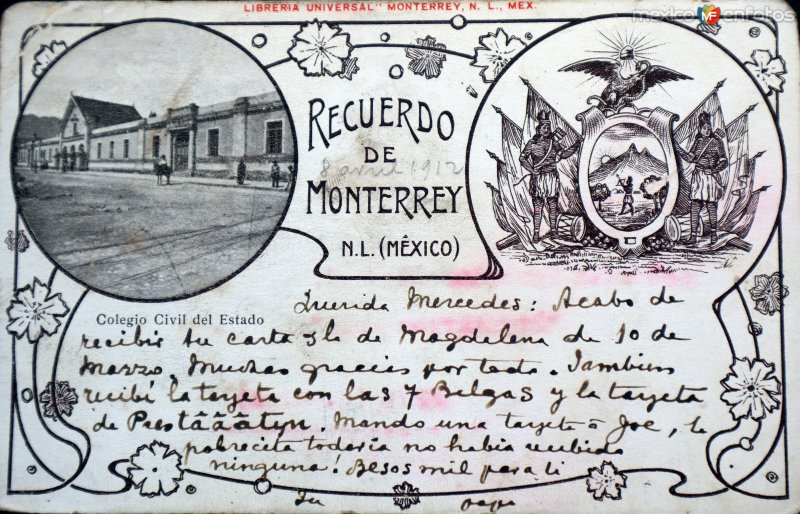 LIBRERIA UNIVERSAL" MONTERREY, N. L., MEX.
mexicoenfotos
RECUERDO
DE
8 avril 1912
MONTERREY
N.L. (MÉXICO)
Colegio Civil del Estado
Querida Mercedes: Acabo de
recibir tu carta y la de Magdalena de 10 de
Marzo. Muchas gracias por todo. Tambien
recibí la tarjeta con las 7 Belgas y la tarjeta
de. Mando una tarjeta a Joe, la
pobrecita todavia no habia recibido
ninguna. Besos mil para ti
Tu papa